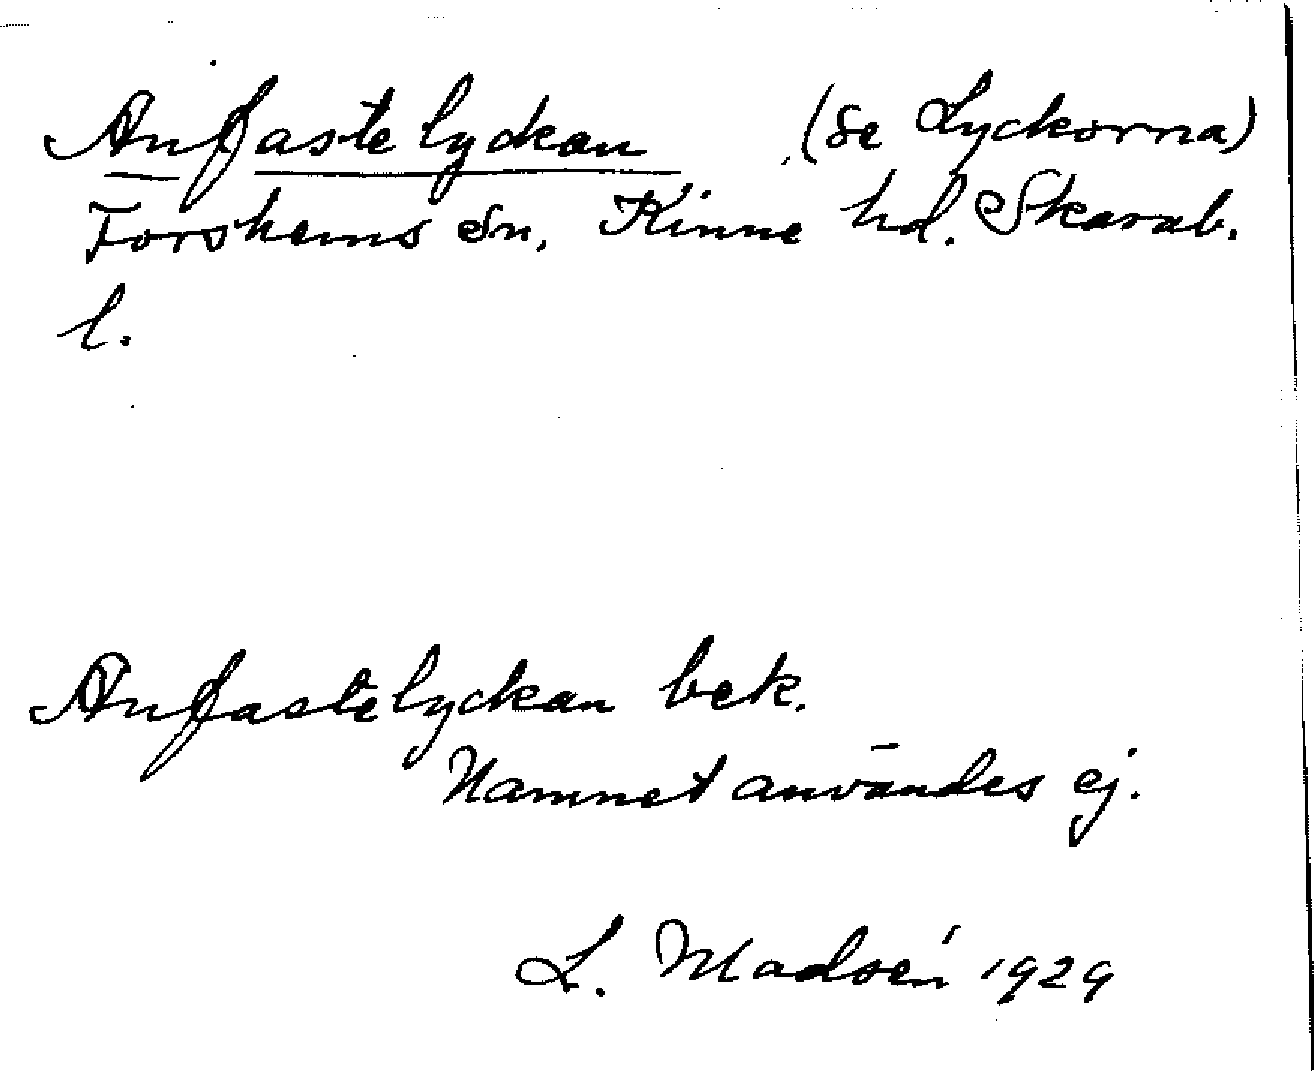 Anfastelyckan (se Lyckorna)
Forshems sn. Kinne hd. Skarab.
l.
Anfastelyckan bek.
Namnet användes ej.
L. Madsén 1929